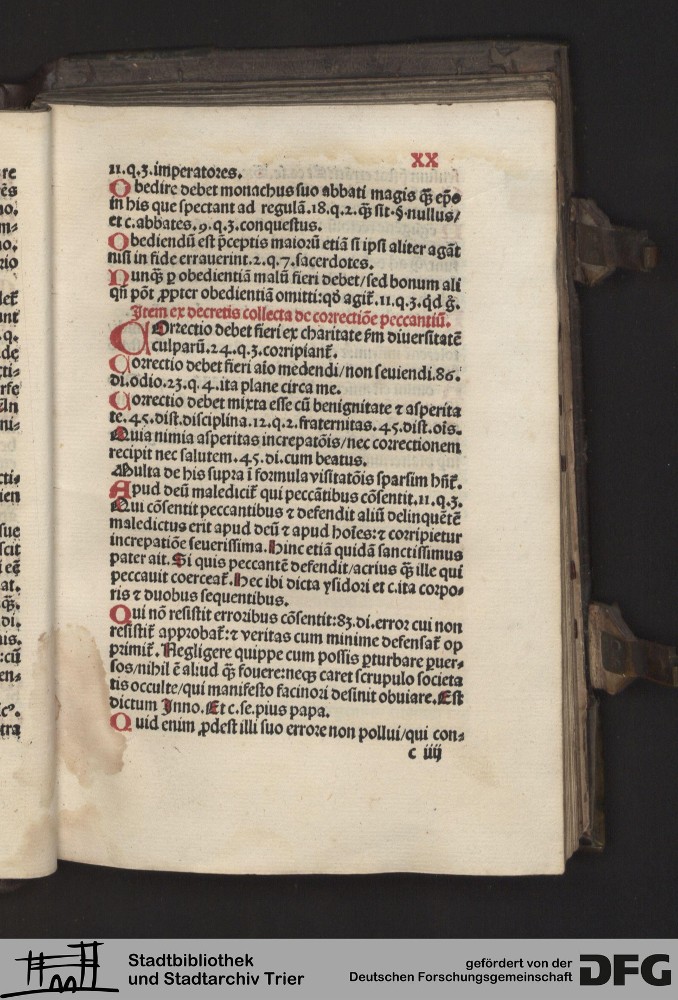 XX
11.q.3.imperatores.
Obedire debet monachus suo abbati magis q̄ꝫ ep̄o
in his que spectant ad regulā.18.q.2.q̄ꝫ sit.§.nullus/
et c.abbates.9.q.3.conquestus.
Obediendū est p̄ceptis maiorū etiā si ipsi aliter agāt
nisi in fide errauerint.2.q.7.sacerdotes.
Nunq̄ꝫ ꝑ obedientiā malū fieri debet/sed bonum ali
qn̄ pōt ꝓpter obedientiā omitti:qd̓ agit̄.11.q.3.q̇d g̈.
Item ex decretis collecta de correctiōe peccantiū.
COrrectio debet fieri ex charitate ẜm diuersitatē
culparū.24.q.3.corripiant̄.
Correctio debet fieri aīo medendi/non seuiendi.86.
di.odio.23.q.4.ita plane circa me.
Correctio debet mixta esse cū benignitate ⁊ asperita
te.45.dist.disciplina.12.q.2.fraternitas.45.dist.oīs.
Quia nimia asperitas increpatōis/nec correctionem
recipit nec salutem.45.di.cum beatus.
Multa de his supra ī formula visitatōis sparsim hn̄t̄.
Apud deū maledicit̄ qui peccātibus cōsentit.11.q.3.
Qui cōsentit peccantibus ⁊ defendit aliū delinquētē
maledictus erit apud deū ⁊ apud hoīes:⁊ corripietur
increpatiōe seuerissima.Hinc etiā quidā sanctissimus
pater ait.Si quis peccantē defendit/acrius q̄ꝫ ille qui
peccauit coerceat̄.Hec ibi dicta ysidori et c.ita corpo⸗
ris ⁊ duobus sequentibus.
Qui nō resistit erroribus cōsentit:83.di.error cui non
resistit̄ approbat̄:⁊ veritas cum minime defensat̄ op
primit̄.Negligere quippe cum possis ꝑturbare ꝑuer⸗
sos/nihil ē aliud q̄ꝫ fouere:neqꝫ caret scrupulo societa
tis occulte/qui manifesto facinori desinit obuiare.Est
dictum Inno.Et c.se.pius papa.
Quid enim ꝓdest illi suo errore non pollui/qui con⸗
c iiij
Stadtbibliothek
und Stadtarchiv Trier
gefördert von der
Deutschen Forschungsgemeinschaft
DFG